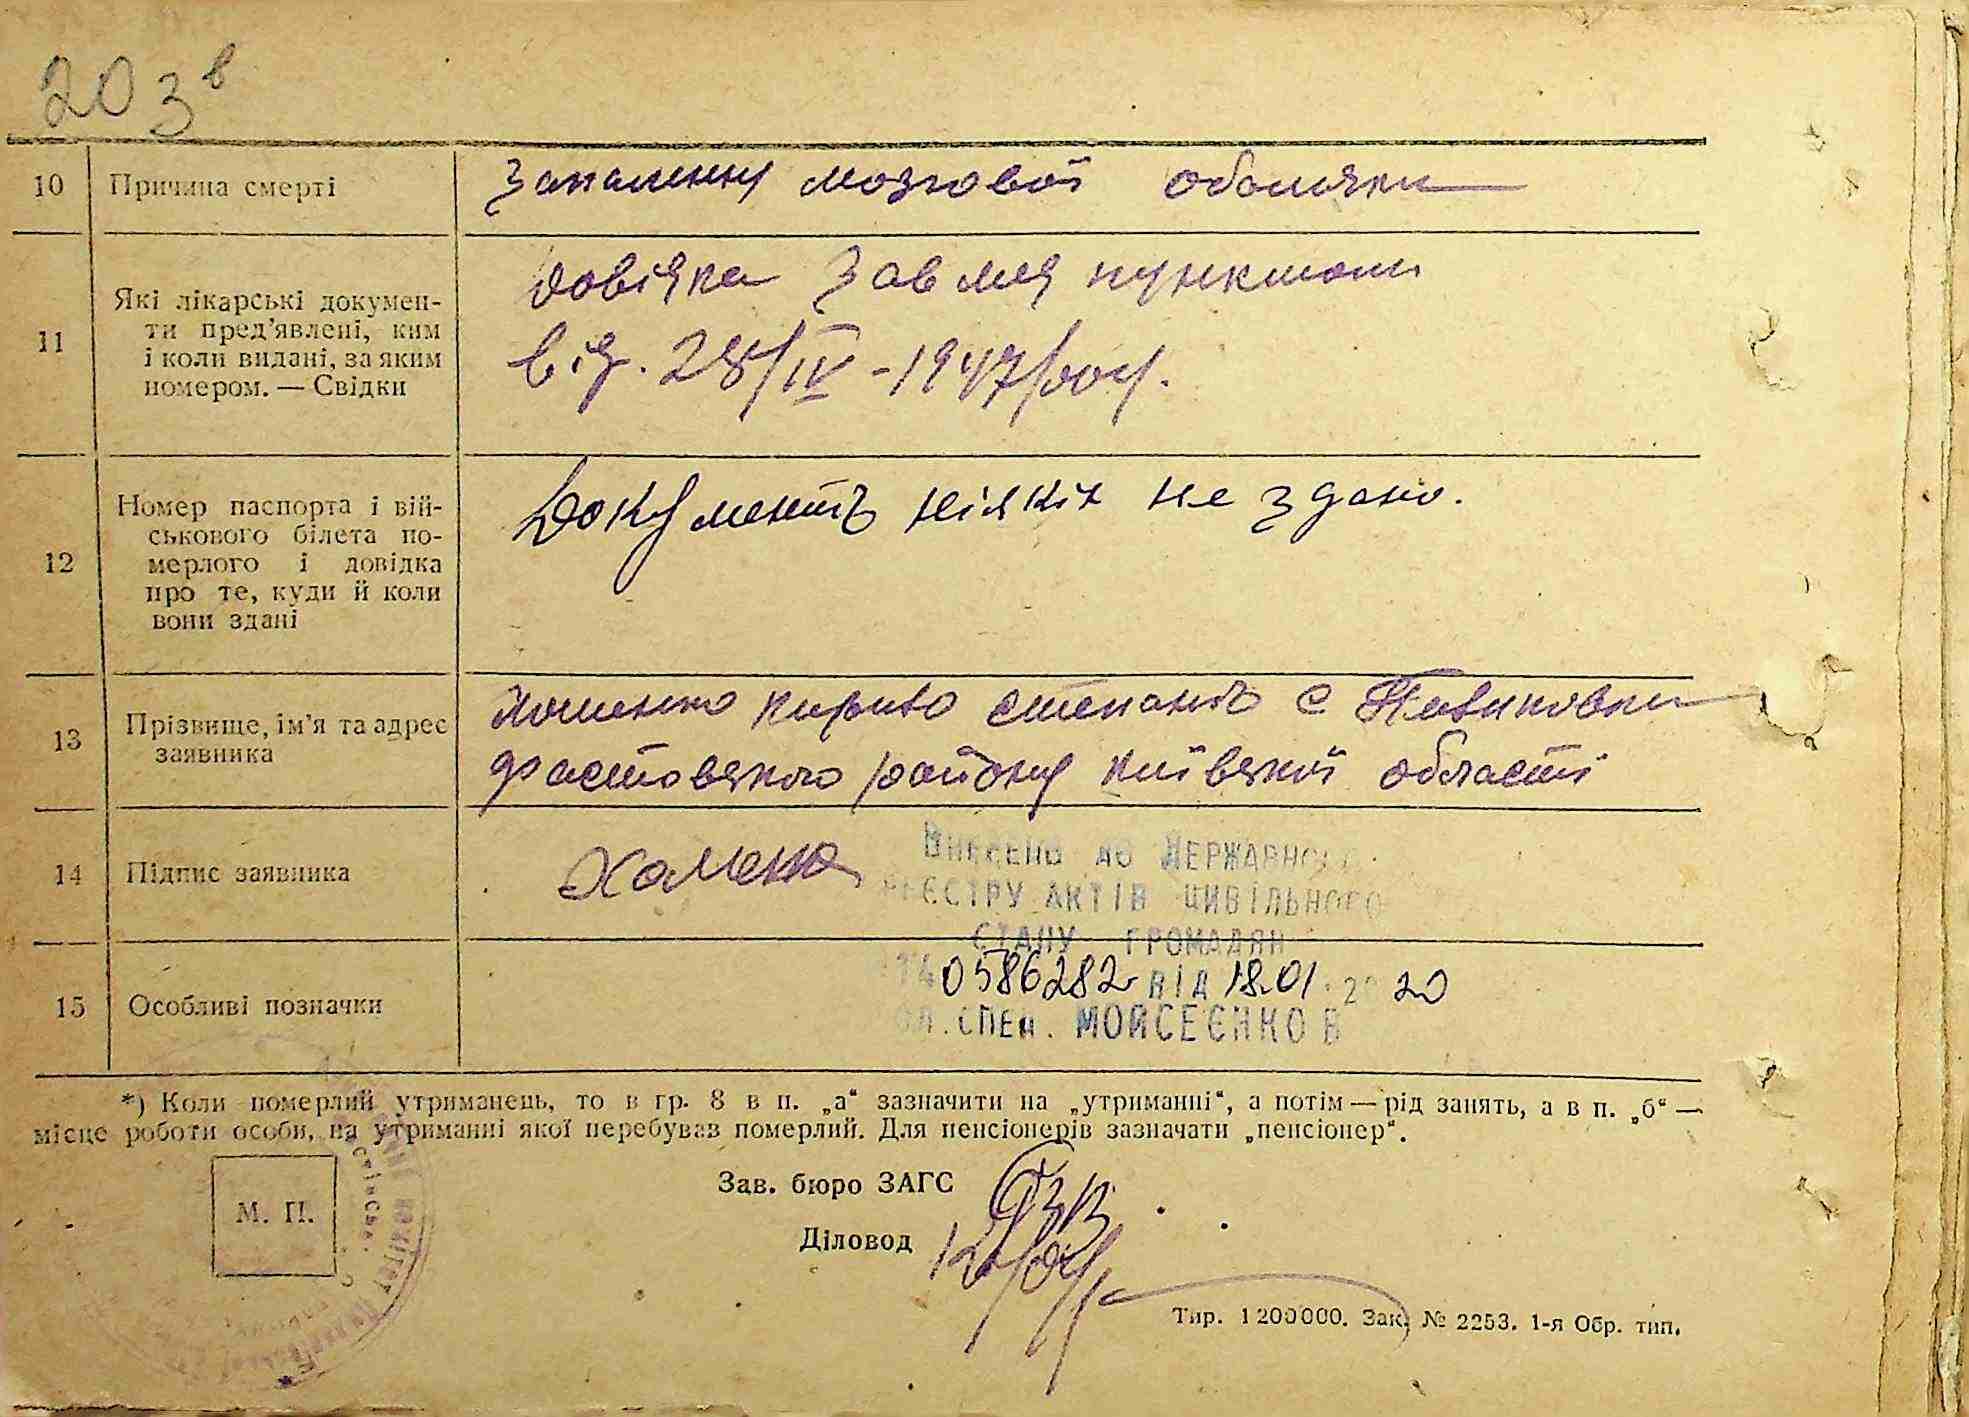 203 в
10 Причина смерті
Запаленну мозгової оболочки
11 Які лікарські докумен-
ти пред'явлені, ким
і коли видані, за яким
номером. — Свідки
Довідка Зав мед пунктом
від. 28/IV - 1947 року.
12 Номер паспорта і вій-
ськового білета по-
мерлого і довідка
про те, куди й коли
вони здані
Документів ніяких не здано.
13 Прізвище, ім'я та адрес
заявника
Степанів с
Фастовського району Київської області
14 Підпис заявника
Внесено до Державного
реєстру актів цивільного
стану громадян
0586282 від 18.01.2020
спец. Мойсеєнко В
15 Особливі позначки
*) Коли померлий утриманець, то в гр. 8 в п. „а“ зазначити на „утриманні“, а потім — рід занять, а в п. „б“ —
місце роботи особи, на утриманні якої перебував померлий. Для пенсіонерів зазначати „пенсіонер“.
М. П.
Зав. бюро ЗАГС
Діловод
Тир. 1200000. Зак. № 2253. 1-я Обр. тип.